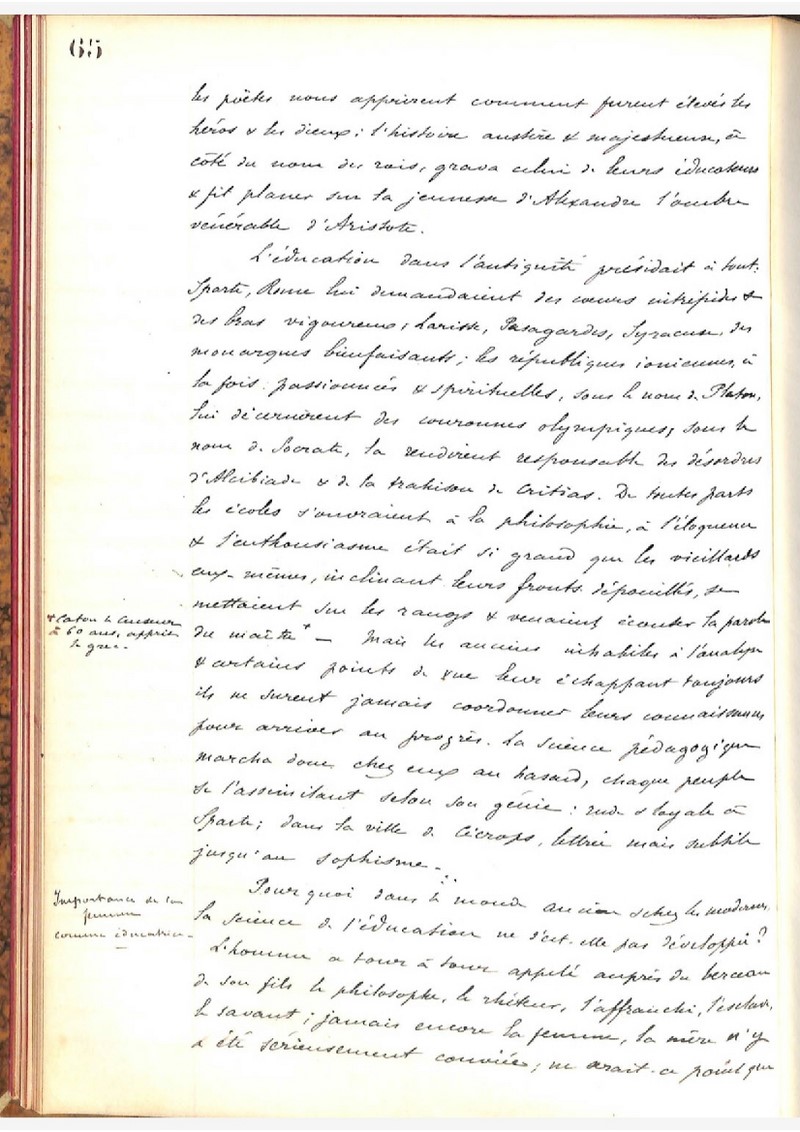 65
les poëtes nous apprirent comment furent élevés les
héros & les dieux; l'histoire austère & majestueuse, à
côté du nom des rois, grava celui de leurs éducateurs
& fit planer sur la jeunesse d'Alexandre l'ombre
vénérable d'Aristote.
L'éducation dans l'antiquité présidait à tout.
Sparte, Rome lui demandaient des cœurs intrépides &
des bras vigoureux; Larisse, Pasagardes, Syracuse, des
monarques bienfaisants; les républiques ioniennes, à
la fois passionnées & spirituelles, sous le nom de Platon,
lui décernèrent des couronnes olympiques; sous le
nom de Socrate, la rendirent responsable des désordres
d'Alcibiade & de la trahison de Critias. De toutes parts
les écoles s'ouvraient à la philosophie, à l'éloquence
& l'enthousiasme était si grand que les vieillards
eux-mêmes, inclinant leurs fronts dépouillés, se
mettaient sur les rangs & venaient écouter la parole
* Caton le Censeur
à 60 ans, apprit
le grec.
du maître * — Mais les anciens inhabiles à l'analyse
& certains points de vue leur échappant toujours
ils ne surent jamais coordonner leurs connaissances
pour arriver au progrès. La science pédagogique
marcha donc chez eux au hasard, chaque peuple
se l'assimilant selon son génie: rude & loyale à
Sparte; dans la ville de Cécrops, lettrée mais subtile
jusqu'au sophisme.
Importance de la
femme
comme éducatrice.
Pourquoi dans le monde ancien & chez les modernes
la science de l'éducation ne s'est-elle pas développée?
L'homme a tour à tour appelé auprès du berceau
de son fils le philosophe, le rhéteur, l'affranchi, l'esclave,
le savant; jamais encore la femme, la mère n'y
a été sérieusement conviée; ne serait-ce point que